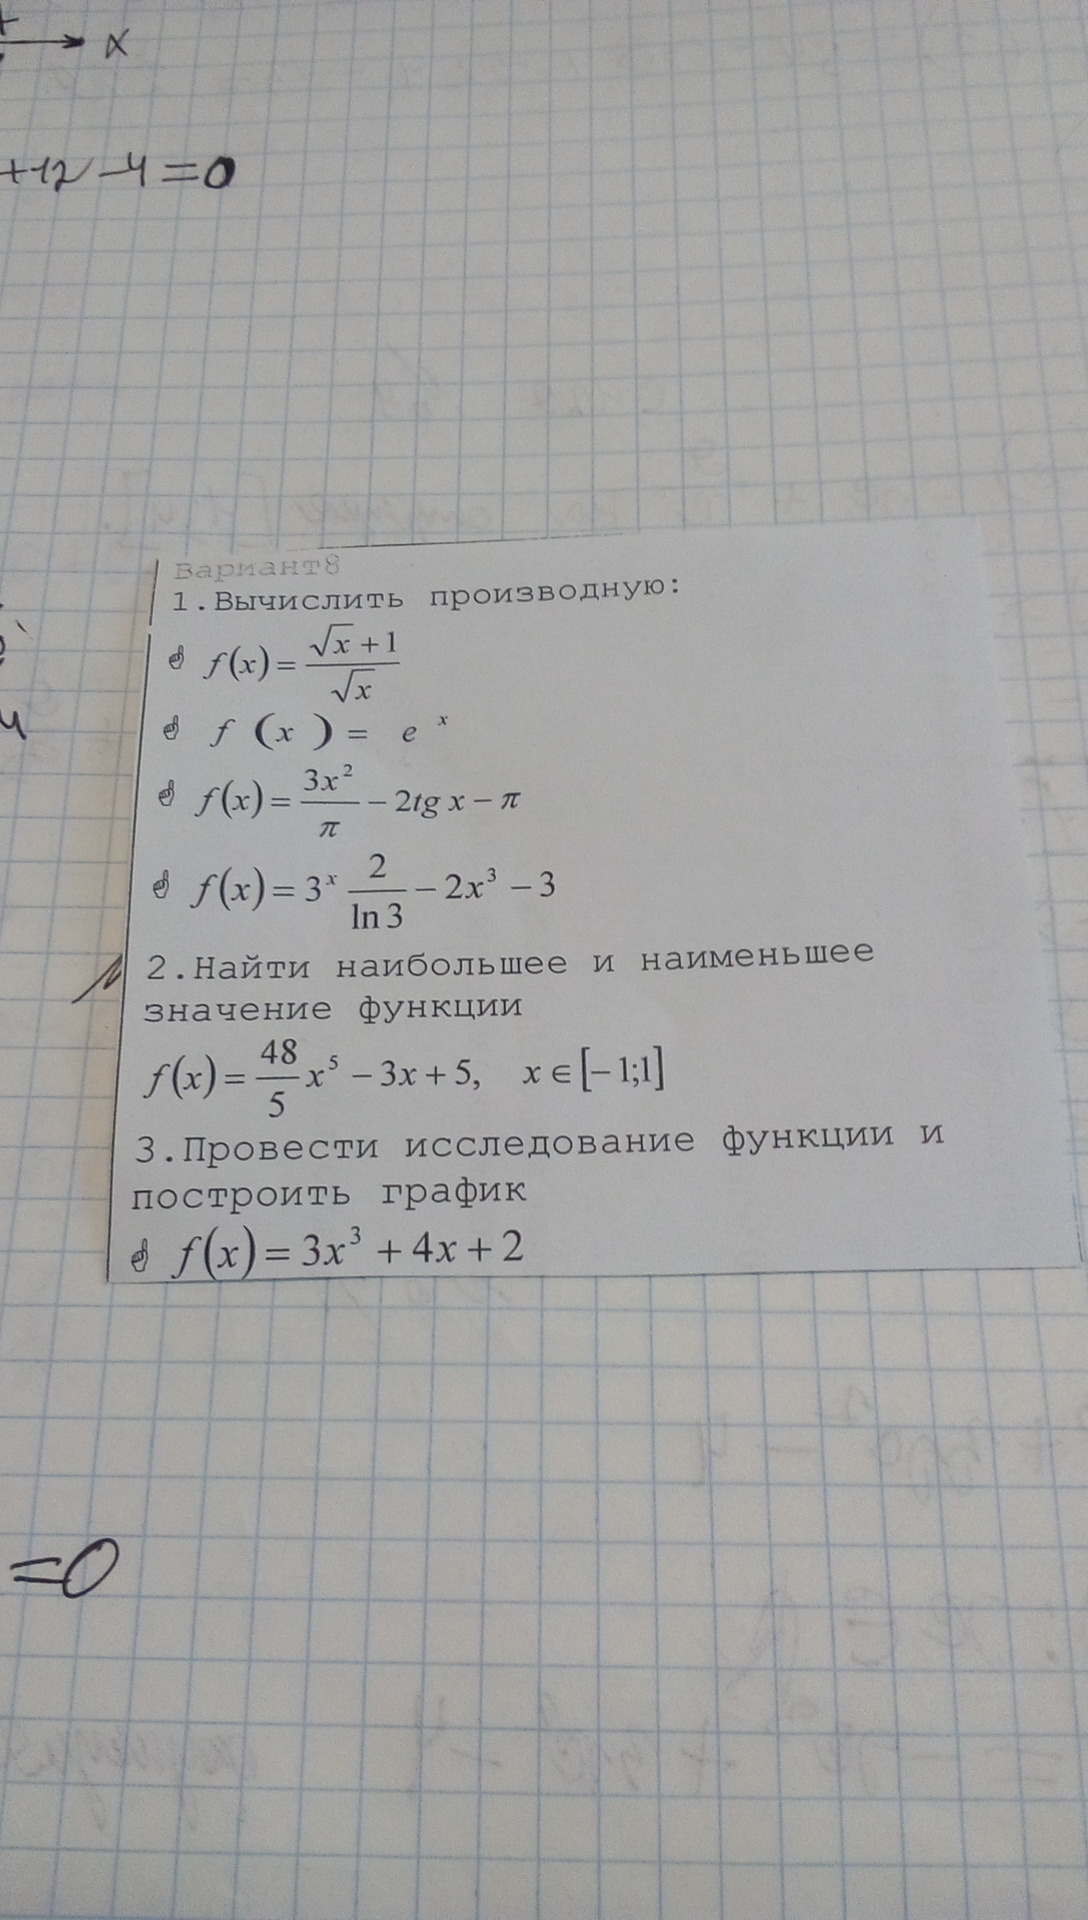 x
+12-4=0
Вариант8
1.Вычислить производную:
f(x)=(√x+1)/√x
f (x) = e^x
f(x)=3x²/π-2tg x-π
f(x)=3^x 2/ln3-2x³-3
2.Найти наибольшее и наименьшее
значение функции
f(x)=48/5 x⁵-3x+5, x∈[-1;1]
3.Провести исследование функции и
построить график
f(x)=3x³+4x+2
=0